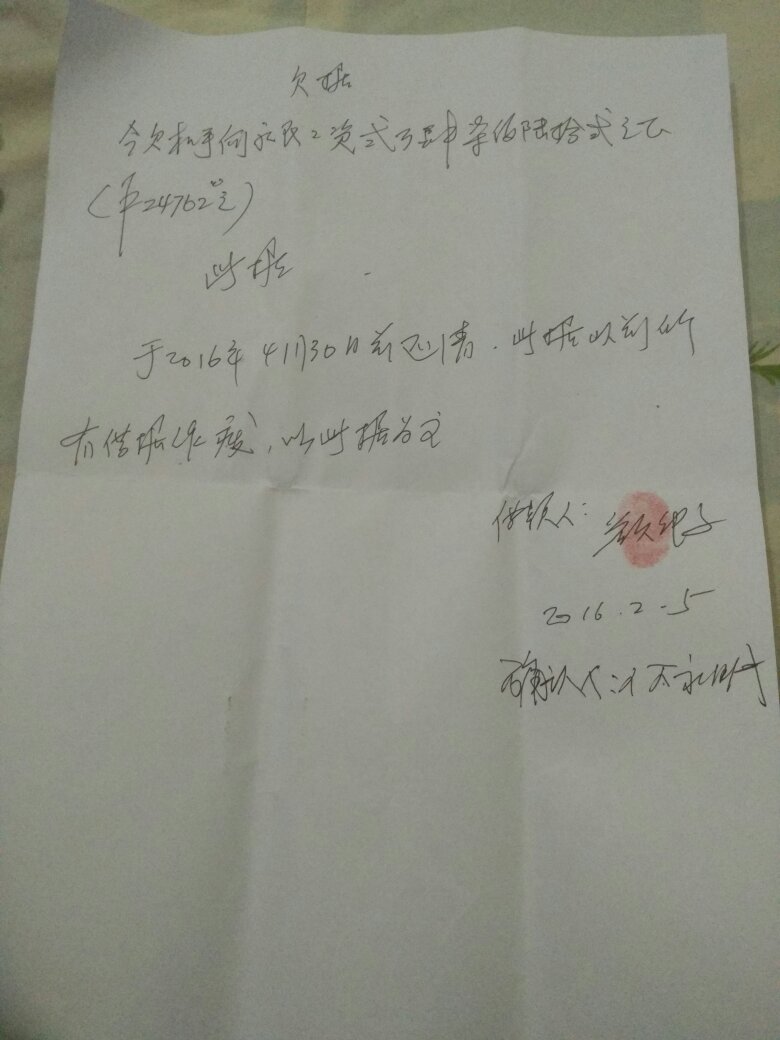 欠据
今欠 工资贰万肆仟柒佰陆拾贰元正
(24762元)
此据
于2016年4月30日前还清.此据以前所
有借据作废,以此据为主
借款人:
2016.2-5
确认人: